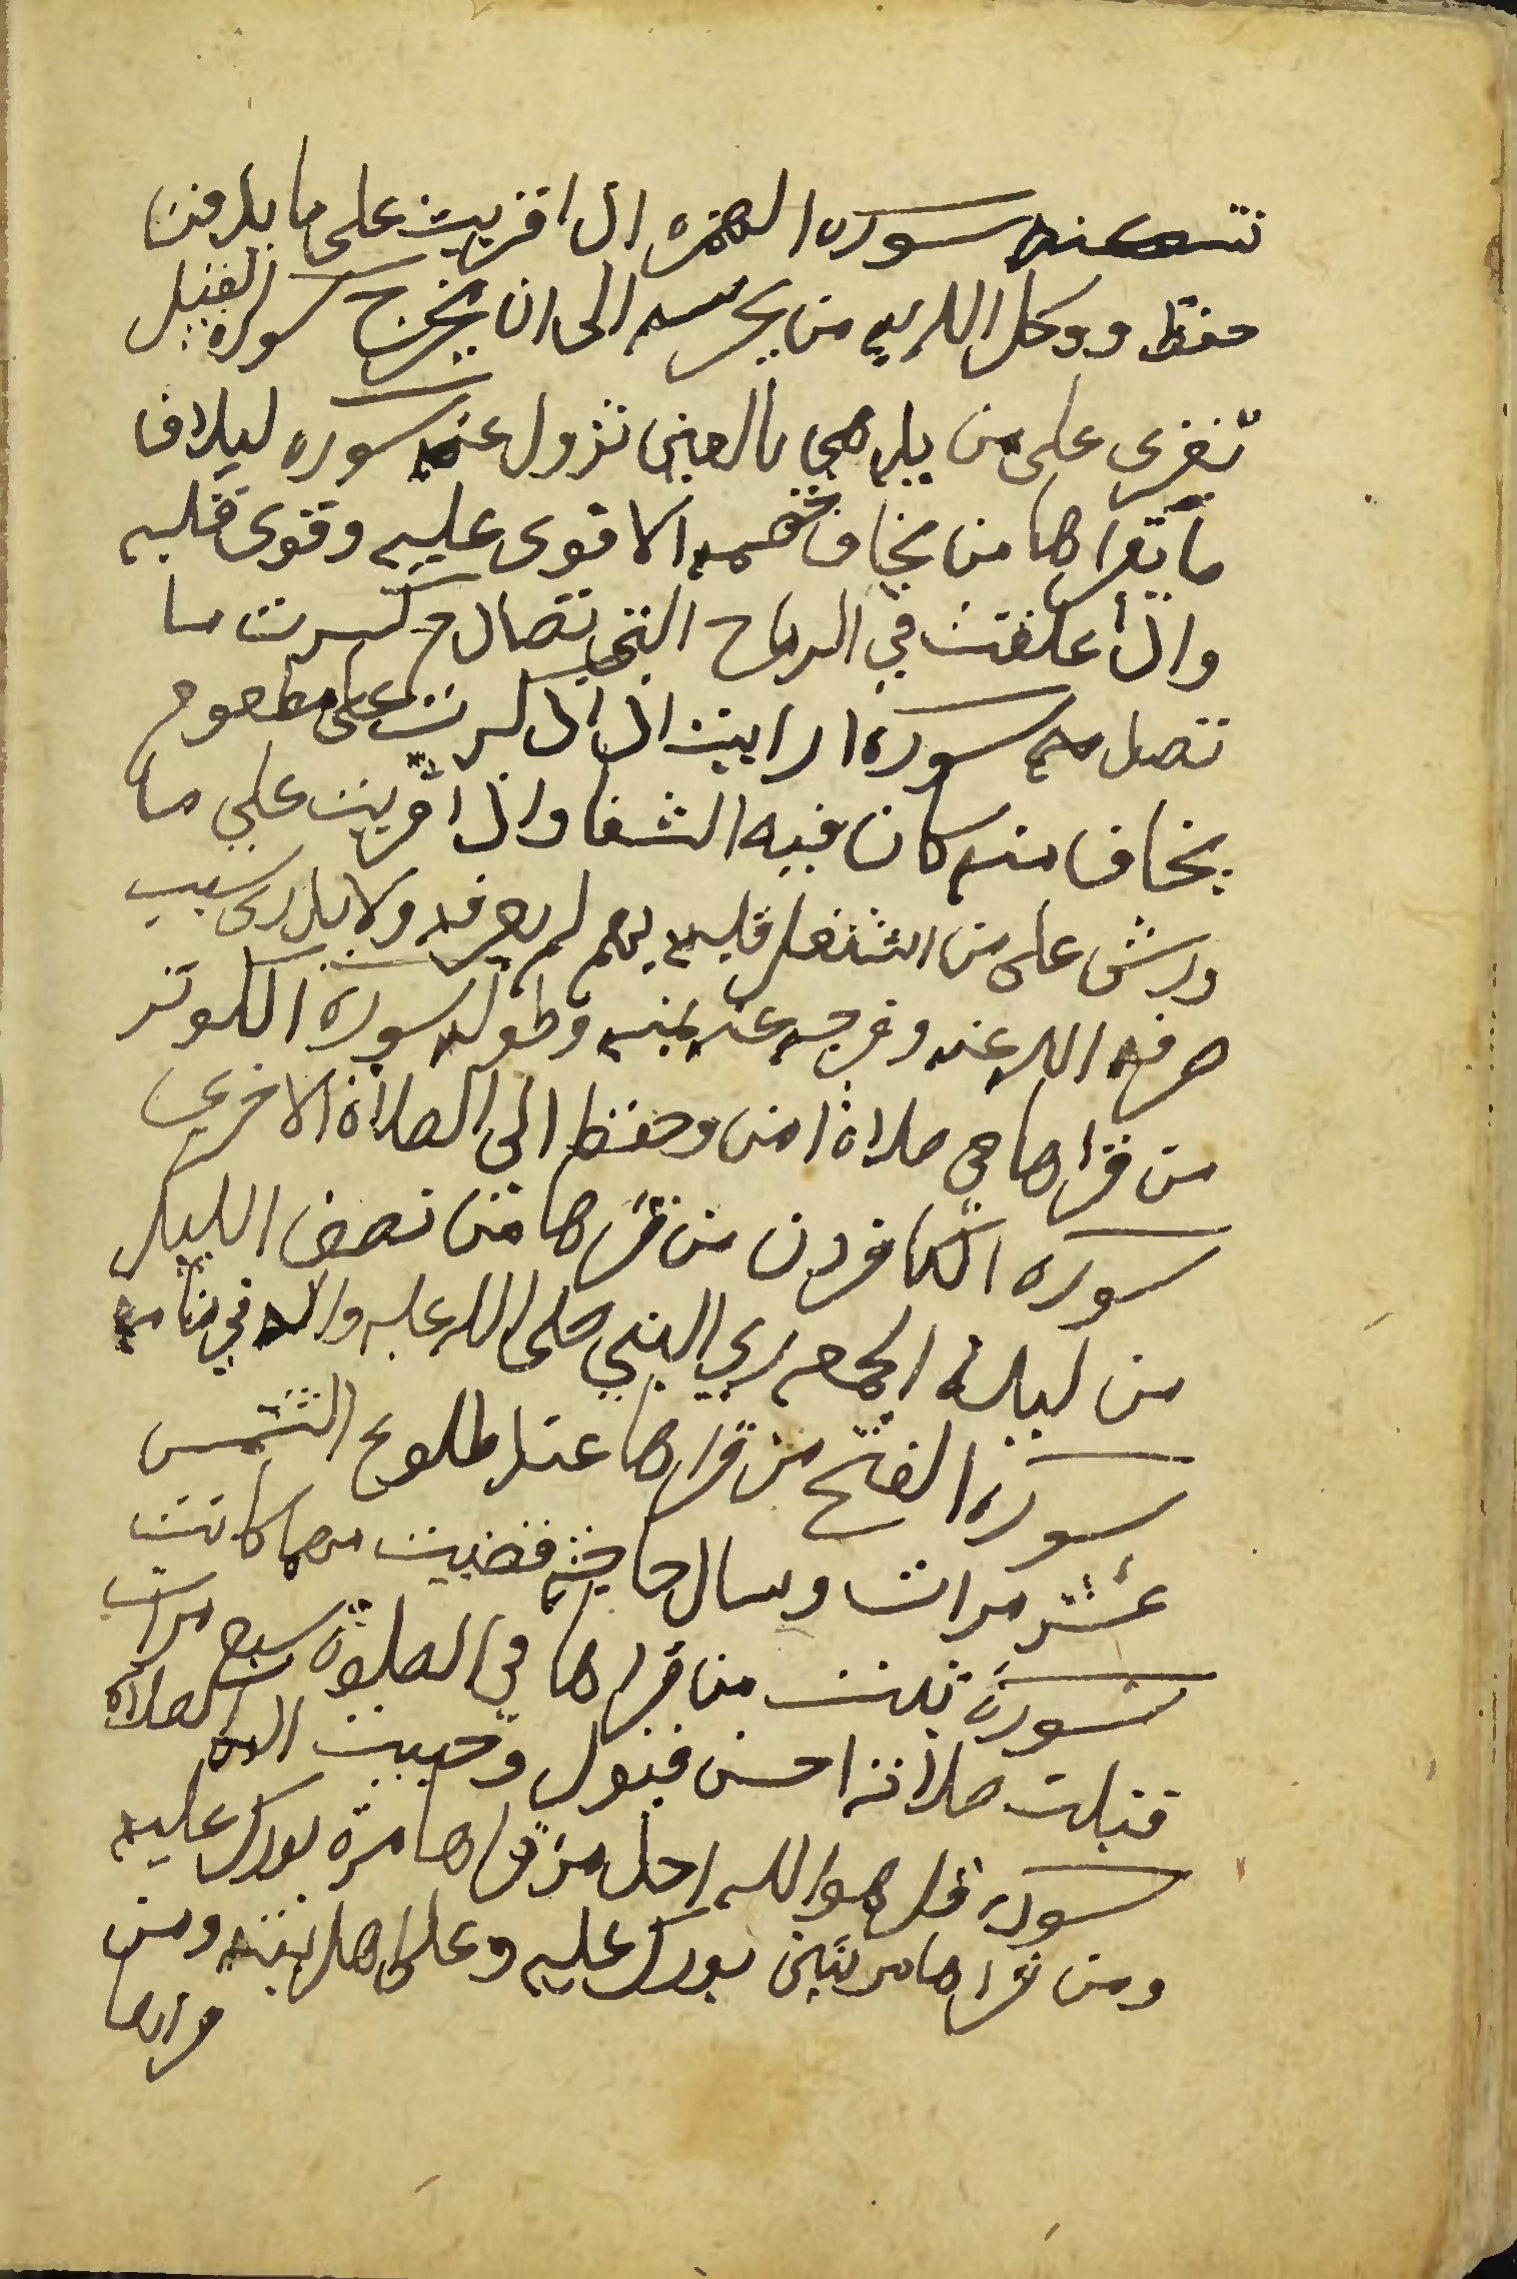 سوره الهمزه اذا قريت على ما يدفن
حفظ ووكل الله به من يحرسه الى ان يخرج سوره الفيل
تقرى على من يلدهي بالعين تزول عنه سوره ليلاف
ما يقراها من يخاف خصمه الا قوى عليه وقوى قلبه
واذا علقت في الرماح التي تصادم كسرت ما
تصدمه سورة ارايت اذا ذكرت على مطعوم
يخاف منه كان فيه الشفا واذا قريت علي ما
ورش على من اشتغل قلبه بهم لم يعرفه ولا يدري سبب
صرفه الله عنه وفرجه عنه بمنه وطوله سورة الكوثر
من قراها في صلاة امن وحفظ الى الصلاة الاخرى
سوره الكافرون من قراها من نصف الليل
من ليلة الجمعه راي النبي صلى الله عليه واله في منامه
سورة الفتح من قراها عند طلوع الشمس
عشر مرات وسال حاجته قضيت مهما كانت
سورة تبت من قراها في الصلوة سبع مرات
قبلت صلاته احسن قبول وحببت اليه الصلاة
سورة قل هو الله احد من قراها مرة بورك عليه
ومن قراها مرتين بورك عليه وعلى اهل بيته ومن
قراها